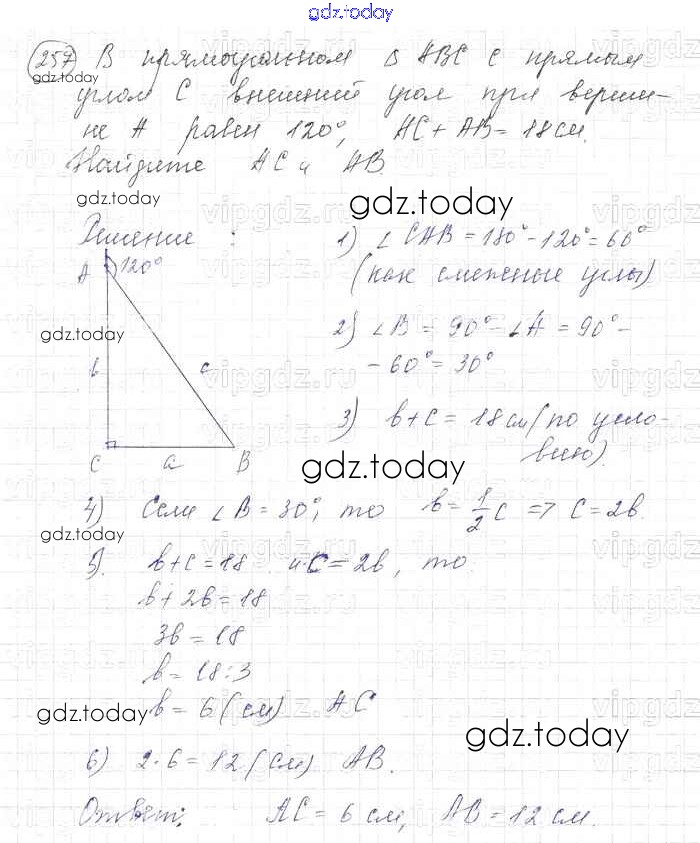 gdz.today
257 В прямоугольном Δ ABC с прямым
gdz.today
углом C внешний угол при верши-
не A равен 120°, AC + AB = 18 см.
Найдите AC и AB.
gdz.today
gdz.today
Решение :
1) ∠CAB = 180° - 120° = 60°
(как смежные углы)
A 120°
gdz.today
2) ∠B = 90° - ∠A = 90° -
- 60° = 30°
b c
3) b + c = 18 см (по усло-
вию).
C a B
gdz.today
4) Если ∠B = 30°, то b = 1/2 c => c = 2b.
gdz.today
5). b + c = 18 и c = 2b, то
b + 2b = 18
3b = 18
b = 18 : 3
b = 6 (см) AC
gdz.today
gdz.today
6) 2 · 6 = 12 (см) AB.
Ответ: AC = 6 см, AB = 12 см.